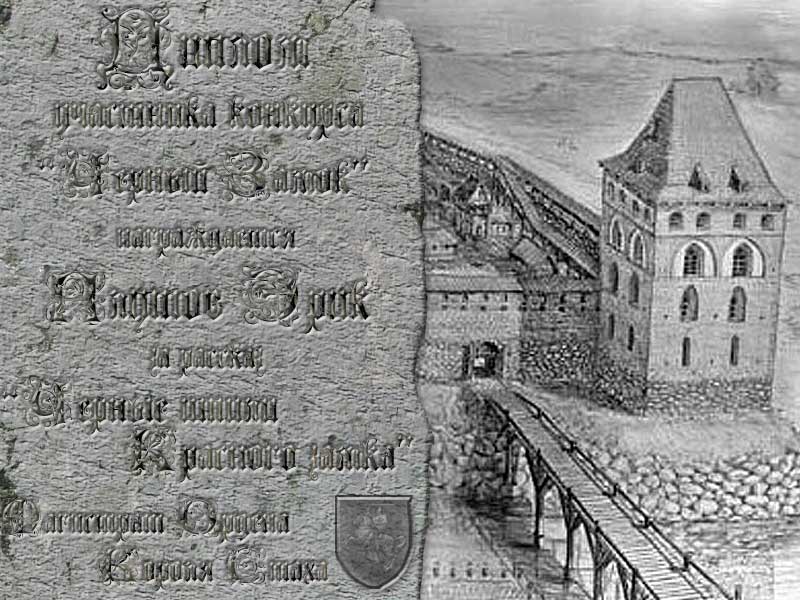 Диплом
участника конкурса
“Черный Замок”
награждается
Эрик
за рассказ
“Черные шпили
Красного замка”
Магистрат Ордена
Короля Стаха